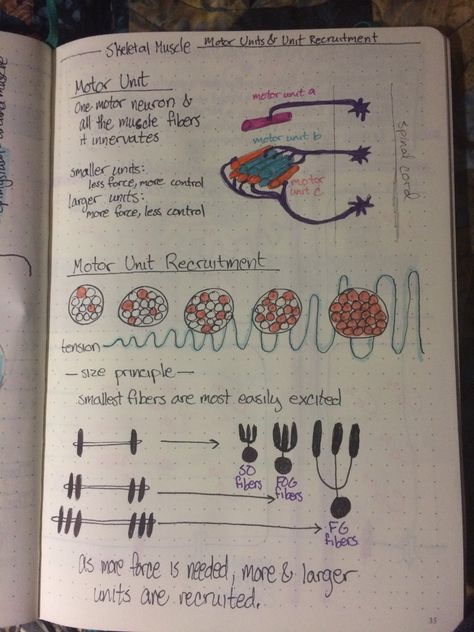 Skeletal Muscle Motor Units & Unit Recruitment
Motor Unit
One motor neuron &
all the muscle fibers
it innervates
smaller units:
less force, more control
larger units:
more force, less control
motor unit a
motor unit b
motor unit c
spinal cord
Motor Unit Recruitment
tension
— size principle —
smallest fibers are most easily excited
SO
fibers
FOG
fibers
FG
fibers
as more force is needed, more & larger
units are recruited.
35